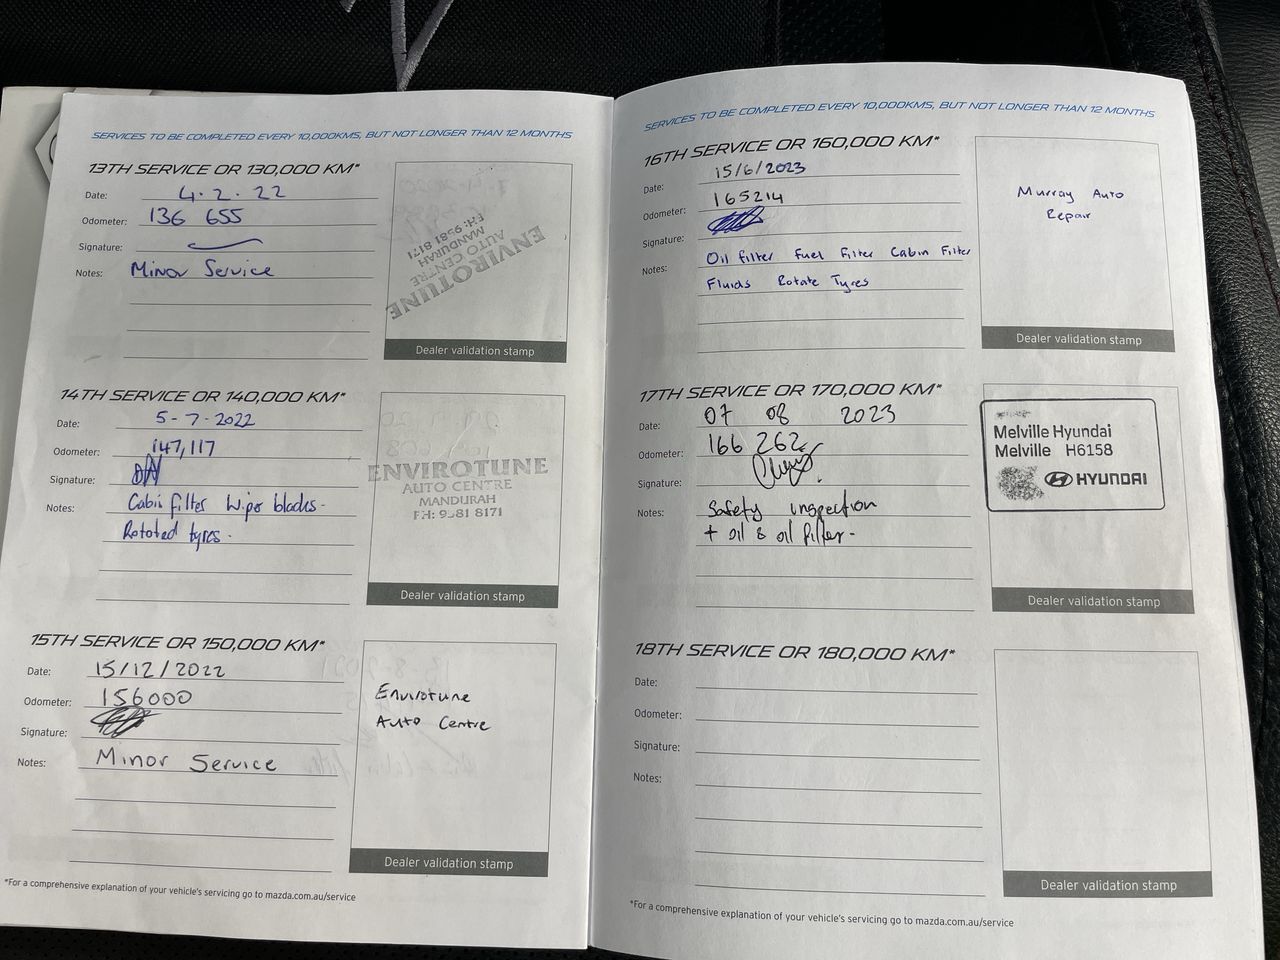 SERVICES TO BE COMPLETED EVERY 10,000KMS, BUT NOT LONGER THAN 12 MONTHS
13TH SERVICE OR 130,000 KM*
Date: 4.2.22
Odometer: 136 655
Signature:
Notes: Minor Service
ENVIROTUNE
AUTO CENTRE
MANDURAH
PH: 9581 8171
Dealer validation stamp
14TH SERVICE OR 140,000 KM*
Date: 5-7-2022
Odometer: 147,117
Signature:
Notes: Cabin filter Wiper blades.
Rotated tyres.
ENVIROTUNE
AUTO CENTRE
MANDURAH
PH: 9581 8171
Dealer validation stamp
15TH SERVICE OR 150,000 KM*
Date: 15/12/2022
Odometer: 156000
Signature:
Notes: Minor Service
Envirotune
Auto Centre
Dealer validation stamp
*For a comprehensive explanation of your vehicle's servicing go to mazda.com.au/service
SERVICES TO BE COMPLETED EVERY 10,000KMS, BUT NOT LONGER THAN 12 MONTHS
16TH SERVICE OR 160,000 KM*
Date: 15/6/2023
Odometer: 165214
Signature:
Notes: Oil filter Fuel Filter Cabin Filter
Fluids Rotate Tyres
Murray Auto
Repair
Dealer validation stamp
17TH SERVICE OR 170,000 KM*
Date: 07 08 2023
Odometer: 166 262
Signature:
Notes: Safety inspection
+ oil & oil filter-
Melville Hyundai
Melville H6158
HYUNDAI
Dealer validation stamp
18TH SERVICE OR 180,000 KM*
Date:
Odometer:
Signature:
Notes:
Dealer validation stamp
*For a comprehensive explanation of your vehicle's servicing go to mazda.com.au/service